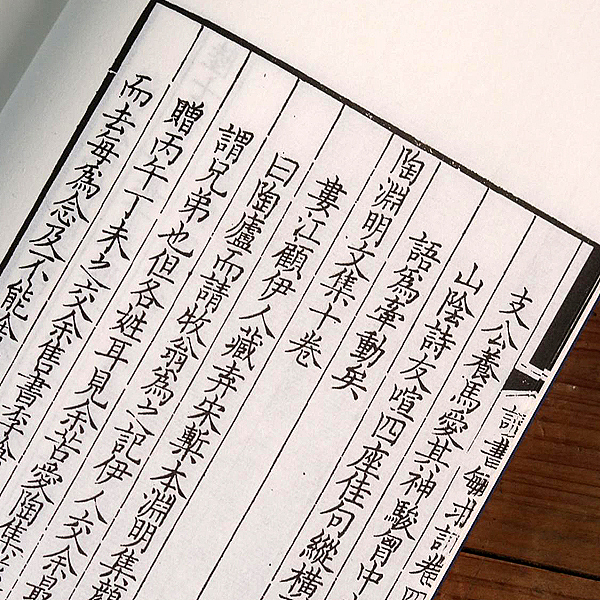 讀書敏求記卷四
支公養馬愛其神駿胃中
山陰詩友喧四座佳句縱橫
語為牽動矣
陶淵明文集十卷
婁江顧伊人藏弆宋槧本淵明集顏
曰陶廬而請牧翁為之記伊人交余最
謂兄弟也但各姓耳見余苦愛陶集
贈丙午丁未之交余售書季
而去每為念及不能